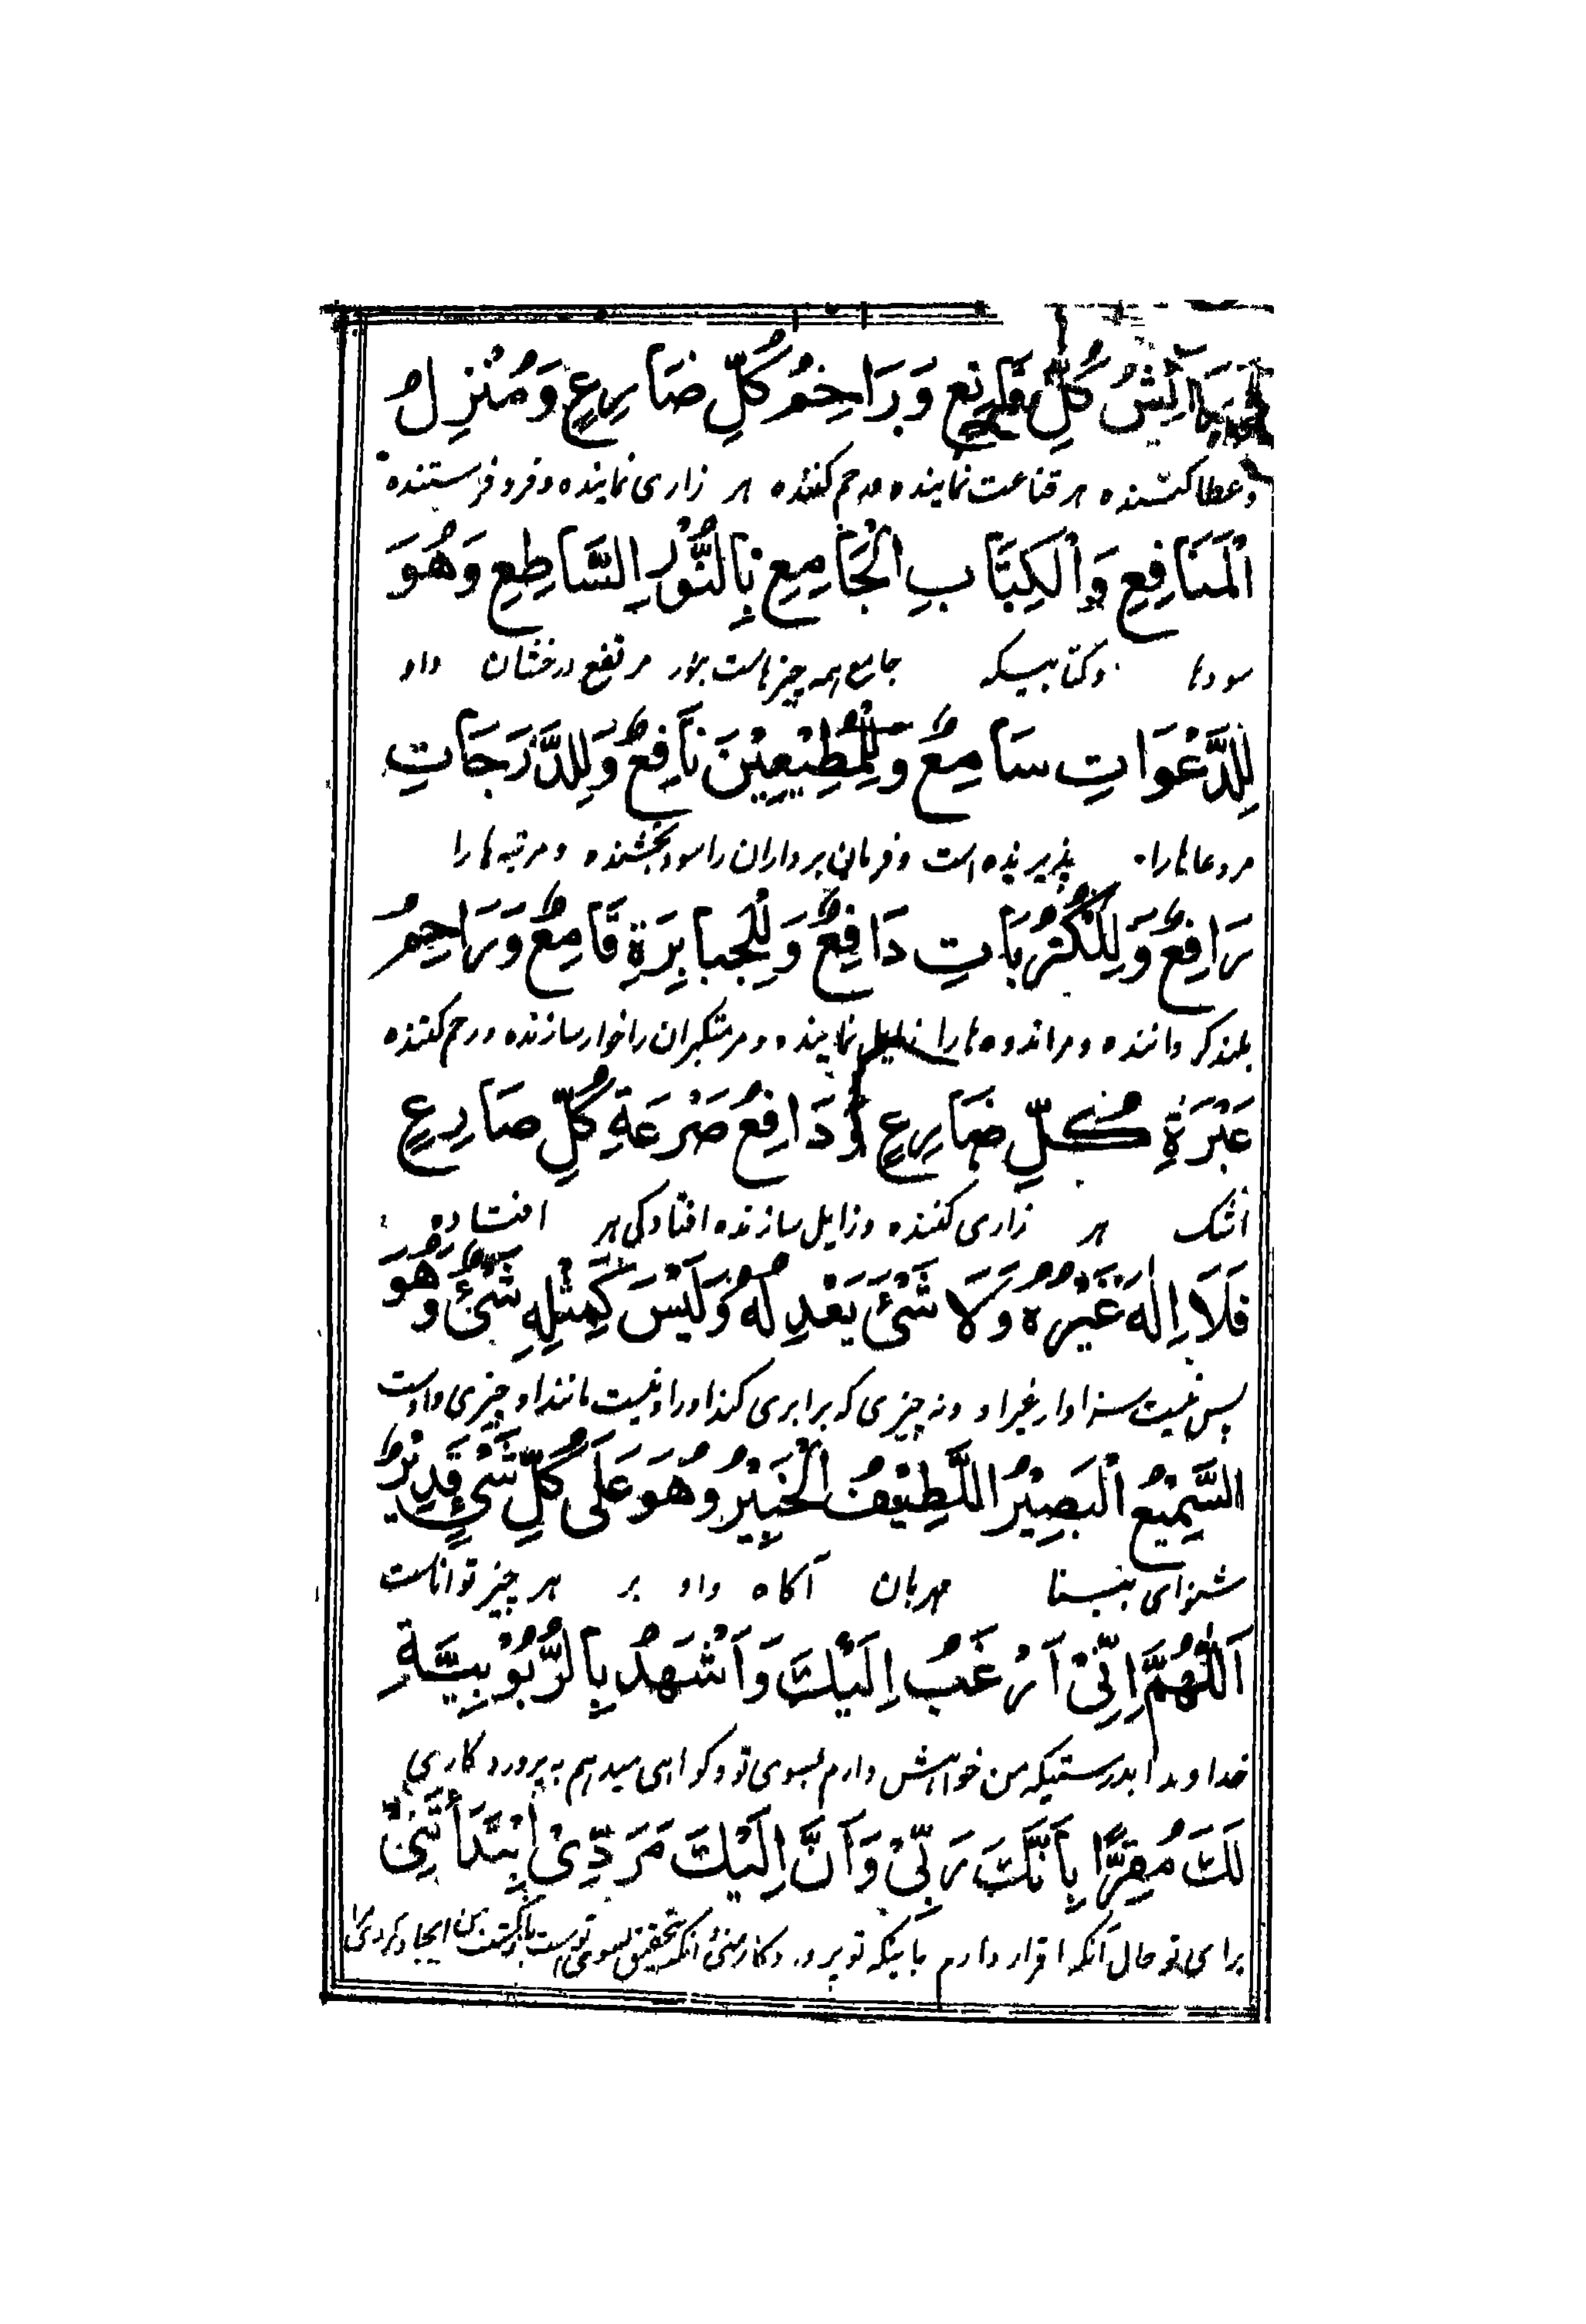 وَرَائِشُ كُلِّ قَانِعٍ وَرَاحِمُ كُلِّ ضَارِعٍ وَمُنْزِلُ
وعطا کننده هر قناعت نماینده ورحم کننده هر زاری نماینده و فرو فرستنده
الْمَنَافِعِ وَالْكِتَابِ الْجَامِعِ بِالنُّوْرِ السَّاطِعِ وَهُوَ
سودها وکتابیکه جامع همه چیزهاست بنور مرتفع درخشان واو
لِلدَّعَوَاتِ سَامِعٌ وَلِلْمُطِيْعِيْنَ نَافِعٌ وَلِلدَّرَجَاتِ
مر دعاها را پذیرنده است و فرمان برداران را سود بخشنده و مرتبه ها را
رَافِعٌ وَلِلْكُرُبَاتِ دَافِعٌ وَلِلْجَبَابِرَةِ قَامِعٌ وَرَاحِمُ
بلند گرداننده و مر اندوه ها را زایل نماینده و مر متکبران را خوار سازنده و رحم کننده
عَبْرَةِ كُلِّ ضَارِعٍ وَدَافِعُ صَرْعَةِ كُلِّ صَارِعٍ
اشک هر زاری کننده و زایل سازنده افتادگی هر افتاده
فَلَا اِلٰهَ غَيْرُهُ وَلَا شَىْءَ يَعْدِلُهُ وَلَيْسَ كَمِثْلِهِ شَىْءٌ وَهُوَ
پس نیست سزاوار غیر او و نه چیزی که برابری کند او را و نیست مانند او چیزی و اوست
السَّمِيْعُ الْبَصِيْرُ اللَّطِيْفُ الْخَبِيْرُ وَهُوَ عَلٰى كُلِّ شَىْءٍ قَدِيْرٌ
شنوای بینا مهربان آگاه واو بر هر چیز تواناست
اَللّٰهُمَّ اِنِّىْ اَرْغَبُ اِلَيْكَ وَاَشْهَدُ بِالرُّبُوْبِيَّةِ
خداوندا بدرستیکه من خواهش دارم بسوی تو و گواهی میدهم به پروردگاری
لَكَ مُقِرًّا بِاَنَّكَ رَبِّىْ وَاَنَّ اِلَيْكَ مَرَدِّىْ اِبْتَدَأْتَنِىْ
برای تو حال آنکه اقرار دارم باینکه تو پروردگار منی و آنکه بتحقیق بسوی توست بازگشت من ایجاد کردی